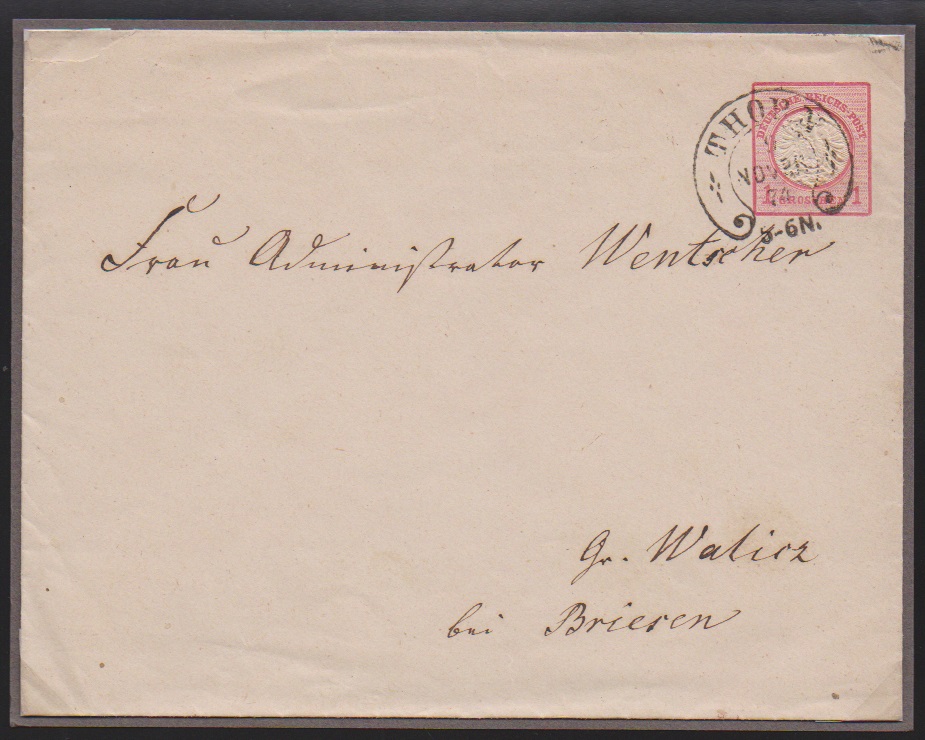 DEUTSCHE REICHS-POST
1 GROSCHEN 1
THOR
NOV
74
5-6N.
Frau Administrator Wentscher
Gr. Walicz
bei Briesen